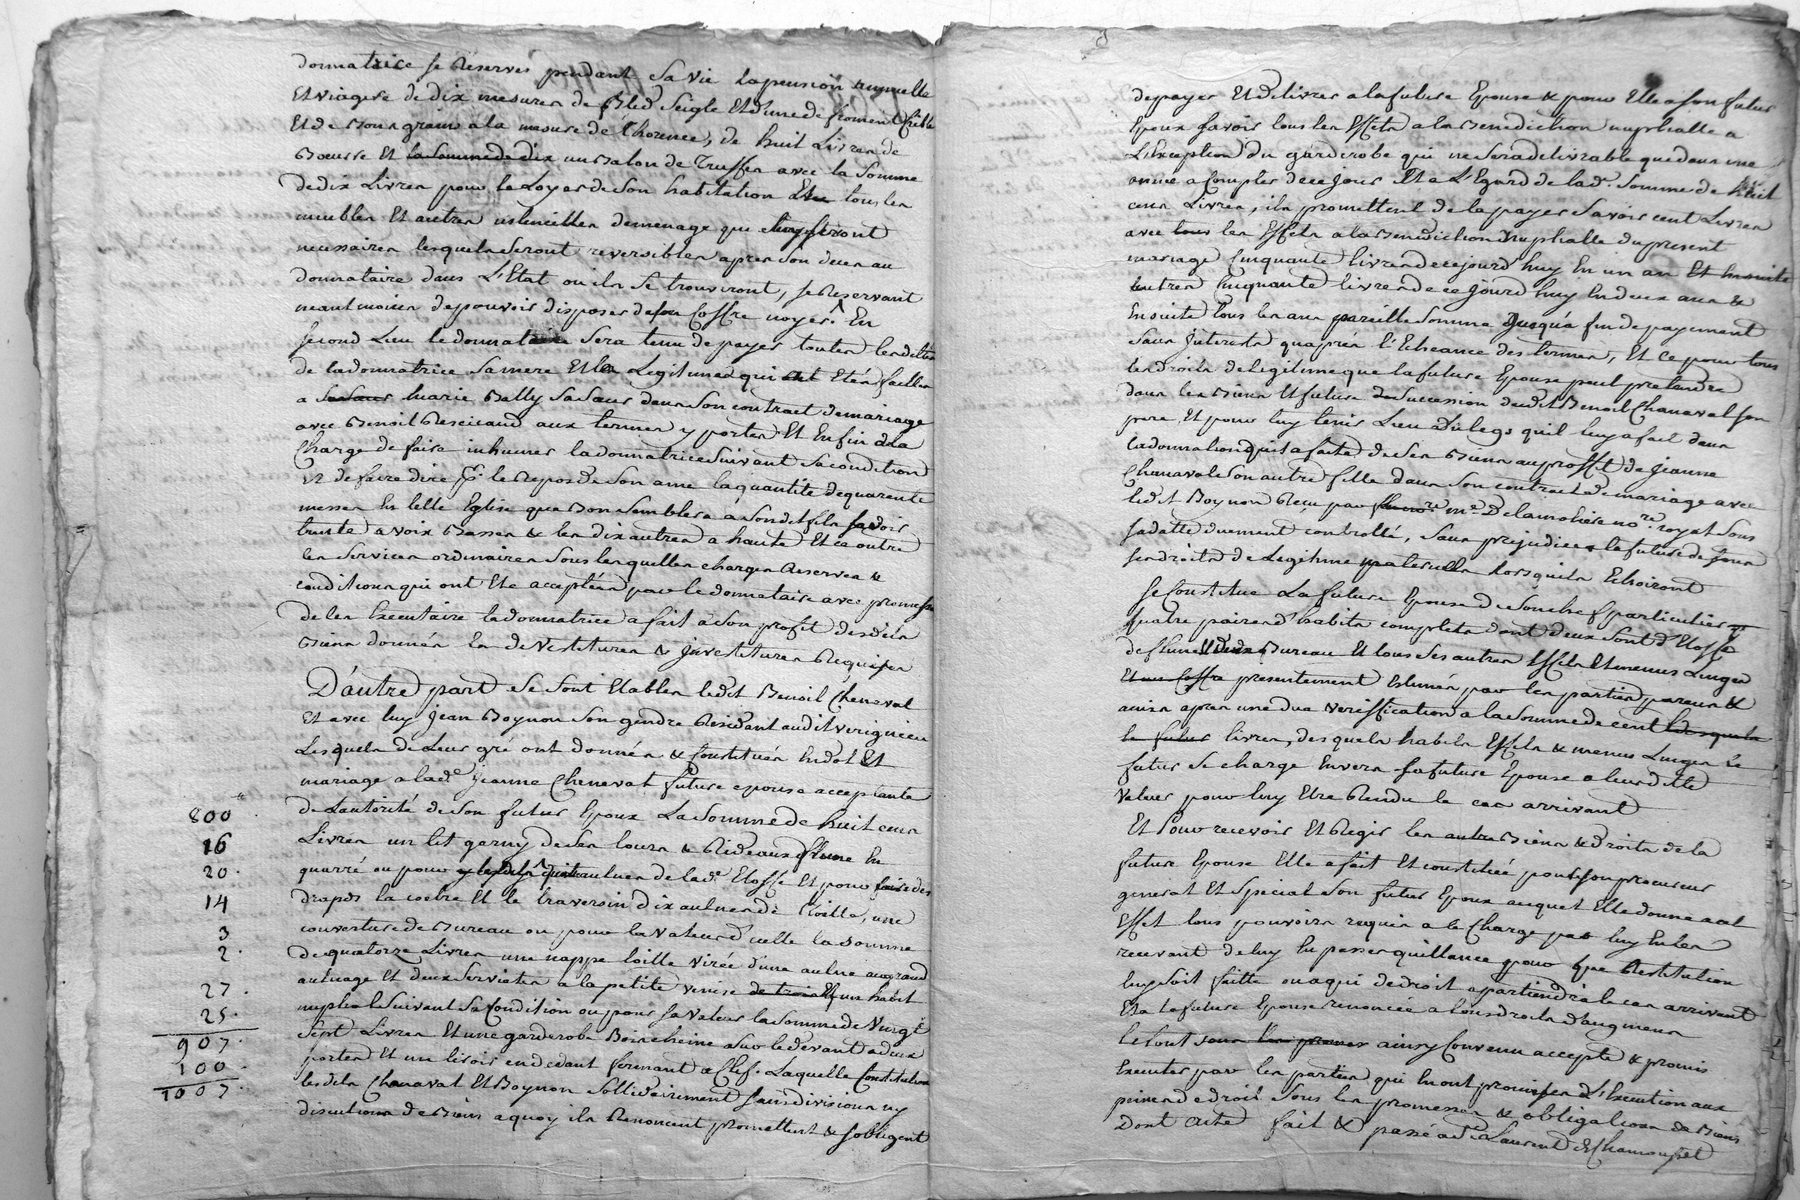 donnataire se Reserves pendant sa vie la pension annuelle
Et viagere de dix mesures de Bled Seigle Et d'une de froment Crible
Et de Bon grain a la mesure de Thorence, de huit Livres de
Boeurre Et la somme de dix un Balon de Truffes avec la Somme
de dix Livres pour le Loyer de Son habitation Et tous les
meubles Et autres ustencilles demenage que luy seront
necessaires lesquels Seront reversibles apres Son deces au
donnataire dans L'Etat ou ils Se trouveront, se Reservant
neantmoins de pouvoir disposer de son Coffre noyer. En
second Lieu le donnataire Sera tenu de payer toutes les dettes
de la donnatrice Sa mere Et les Legitimes qui ont Etés faittes
a Sa Soeur Marie Bally Sa Soeur dans Son contract de mariage
avec Benoit aux termes y portés Et Enfin a La
Charge de faire inhumer la donnatrice Suivant Sa condition
et de faire dire pr. le Repos de Son ame la quantité de quarente
messes En telle Eglise que Bon Semblera a Son dit fils Savoir
trente a voix Basses & les dix autres a haute Et ce outre
les Services ordinaires Sous lesquelles charges Reserves &
conditions qui ont Eté acceptées par le donnataire avec promesse
de les Executer la donnatrice a fait a Son profit desdits
Biens donnés Les deVestitures & jnvestitures Requises
D'autre part Se Sont Etablis ledit Benoit Chenaval
Et avec luy Jean Boynon Son gendre Residant audit
Lesquels de Leur gré ont donnés & Constitués En dot Et
mariage a lade. Jeanne Chenevat future epouse acceptante
800 de Lautorité de Son futur Epoux La Somme de huit cens
16 Livres un lit garny de Ses tours & Rideaux En
20. quarré ou pour aulnes de lade. Etoffe Et pour faire des
14 draps la coetre Et le traversin dix aulnes de Toille, une
3 couverture de Bureau ou pour la valeur d'icelle la Somme
2. de quatorze Livres une nappe toille virée d'une aulne au grand
27. aulnage Et deux Serviettes a la petite venise un habit
25. nuptial Suivant Sa Condition ou pour Sa Valeur la Somme de Vingt
907. Sept Livres Et une garderobe Bois cheine Sur le devant a deux
100. portes Et un tiroir en dedant fermant a Clef. Laquelle Constitution
1007. lesdits Chanavat Et Boynon Sollidairement Sans division ny
discution de Biens a quoy ils Renoncent promettent & S'obligent
de payer Et delivrer a la future Epouse & pour Elle a Son futur
Epoux Savoir tous les Effets a la Benediction nuptialle a
L'Exception du garderobe qui ne Sera delivrable que dans une
année a Compter de ce Jour Et a L'Egard de lade. Somme de huit
cens Livres, ils promettent de la payer Savoir cent Livres
avec tous les Effets a la Benediction Nuptialle du present
mariage Cinquante livres de ce jourd'huy En un an Et Ensuite
autres Cinquante livres de ce Jourd'huy En deux ans &
Ensuite tous les ans pareille Somme Jusqu'a fin de payement
Sans Jnterests qu'apres l'Echeance des termes, Et ce pour tous
les droits de legitime que la future Epouse peut pretendre
dans les Biens Et future Succession dudit Benoit Chanaval Son
pere, Et pour luy tenir Lieu du legs quil luy a fait dans
la donnation quil a faite de Ses Biens au proffit de Jeanne
Chanavale Son autre fille dans Son contract de mariage avec
ledit Boynon Recu par me. Delamoliere nore. royal Sous
Sa datte duement controllé, Sans prejudice a la future de Tous
Ses droits de Legitime maternelle Lorsquils Echoiront
Se Constitue La future Epouse de Son chef particulier
quatre paires d'habits complets dont deux Sont d'Etoffe
de Bureau Et tous Ses autres Effets Et menus Linges
Et un Coffre presentement Estimés par les parties parens &
amis apres une due veriffication a la Somme de cent
le futur livres, desquels habits Effets & menus Linges le
futur Se charge Envers Sa future Epouse a leur dte
Valeur pour luy Etre Rendu le cas arrivant
Et Pour recevoir Et Regir les autres Biens & droits de la
future Epouse Elle a fait Et constitué pour Son procureur
general Et Special Son futur Epoux auquel Elle donne a cet
Effet tous pouvoirs requis a la Charge par luy En les
recevant de luy En passer quittance pour que Restitution
luy Soit faitte ou a qui de droit apartiendra le cas arrivant
Et a la future Epouse renoncée a tous droits d'augment
Le tout sous les promes ainsy Convenu accepté & promis
Executer par les parties qui En ont promises L'Execution aux
peines de droit Sous les promesses & obligations de Biens
Dont acte fait & passé a St. Laurent de Chamousset